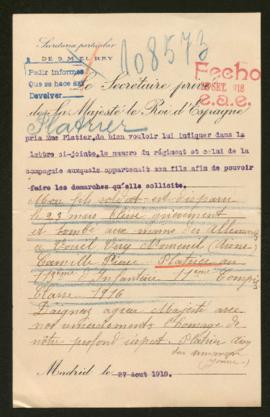 Secretaria particular
DE S. M. EL REY
108573
Fecho
SET. 918
e.a.e.
Pedir informes
Que se hace así
Devolver
Le Secrétaire privé
de Sa Majesté le Roi d'Espagne
Platrier
prie Mme Platier, de bien vouloir lui indiquer dans la
lettre ci-jointe, le numero du régiment et celui de la
compagnie auxquels appartenait son fils afin de pouvoir
faire les demarches qu'elle sollicite.
Mon fils soldat est disparu
le 23 mars
et tombé aux mains des allemands
Camille Pierre Platrier au
Infanterie 11ème Compie
Classe 1916
Daignez agréer Majesté avec
nos remerciements l'homage de
notre profond respect Platrier
Madrid le 27 Aout 1918.